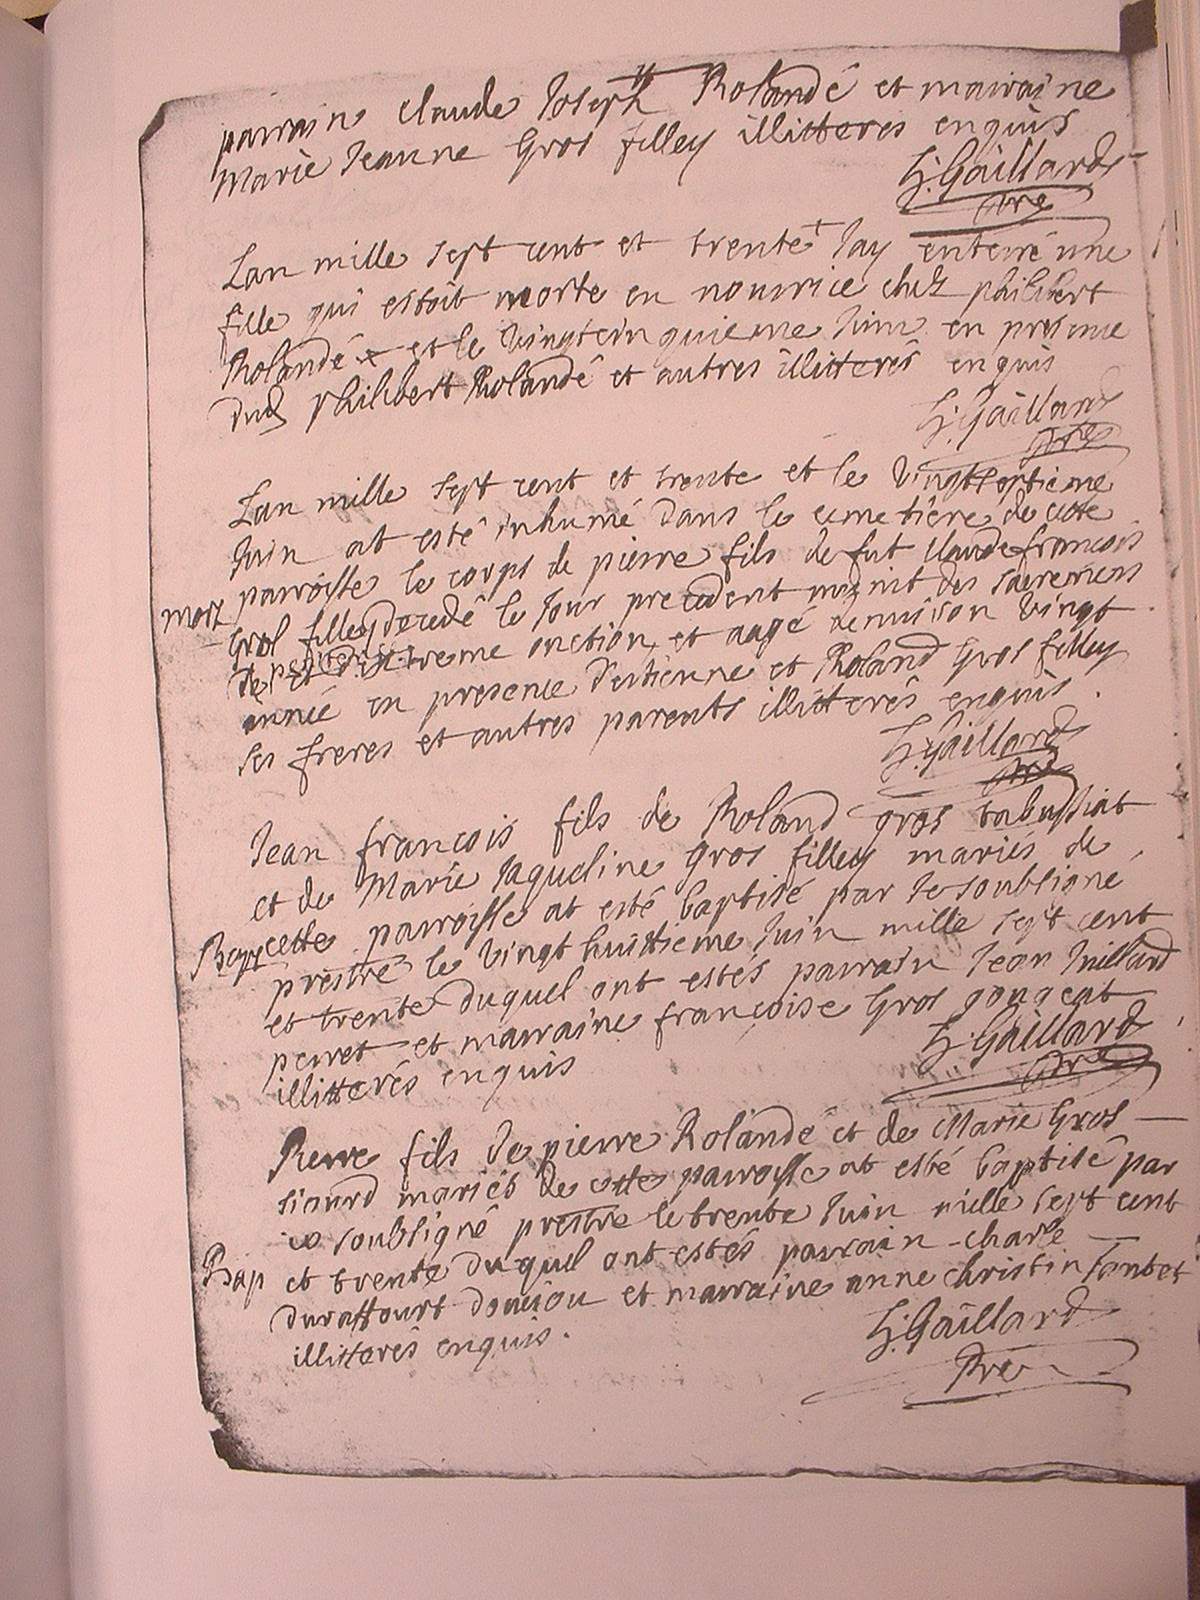 parrain Claude Joseph Rolandé et mairaine
Marie Jeanne Gros filley illitteres enquis
h: Gaillard
pre
Lan mille sept cent et trente Jay enterré une
fille qui estoit morte en nourrice chez philibert
Rolandé et le vingtcinquieme Juin en presence
dud philibert Rolandé et autres illitterés enquis
h: Gaillard
pre
Lan mille sept cent et trente et le vingtseptieme
Juin at esté inhumé dans le cemetière de cette
parroisse le corps de pierre fils de fut Claude francois
mort
Gros filley decedé le Jour precedent munit des sacremens
de et d'extreme onction et aagé denviron vingt
année en presence d'estienne et Roland Gros filley
ses freres et autres parents illitterés enquis.
h: Gaillard
pre
Jean francois fils de Roland gros tabussiat
et de Marie Jaqueline Gros filley mariés de
Bap cette parroisse at esté baptisé par le soubsigné
prestre le vingt huittieme Juin mille sept cent
et trente duquel ont estés parrain Jean Juillard
perret et marraine françoise Gros gongeat
illitterés enquis
h: Gaillard
pre
Pierre fils de pierre Rolandé et de Marie Gros
siaurd mariés de cette parroisse at esté baptisé par
le soubsigné prestre le trente Juin mille sept cent
Bap et trente duquel ont estés parrain charle
duraffourt et marraine anne christin
illitterés enquis.
h: Gaillard
Pre